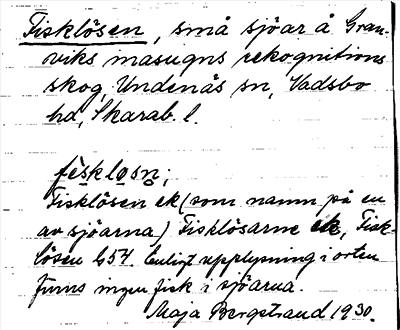 Fisklösen, små sjöar å Gran-
viks masugns rekognitions
skog, Undenäs sn, Vadsbo
hd, Skarab. l.
fèsklo̱sn̥;
Fisklösen ek (som namn på en
av sjöarna) Fisklösarne ek, Fisk-
lösen G 54. Enligt upplysning i orten
finns ingen fisk i sjöarna.
Maja Bergstrand 1930.